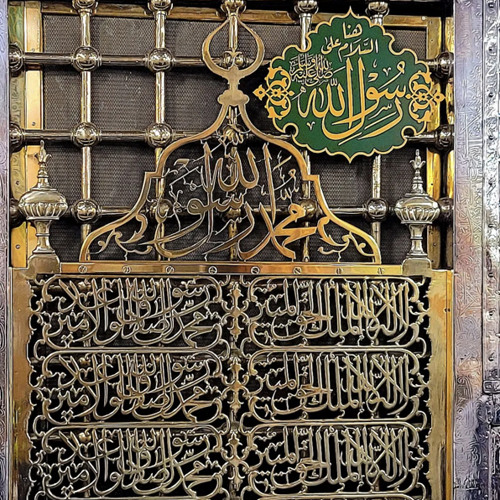 هنا
السلام على
رسول الله
صلى الله عليه وسلم
محمد رسول الله
لا اله الا الله الملك الحق المبين محمد رسول الله الصادق الوعد الامين
لا اله الا الله الملك الحق المبين محمد رسول الله الصادق الوعد الامين
لا اله الا الله الملك الحق المبين محمد رسول الله الصادق الوعد الامين